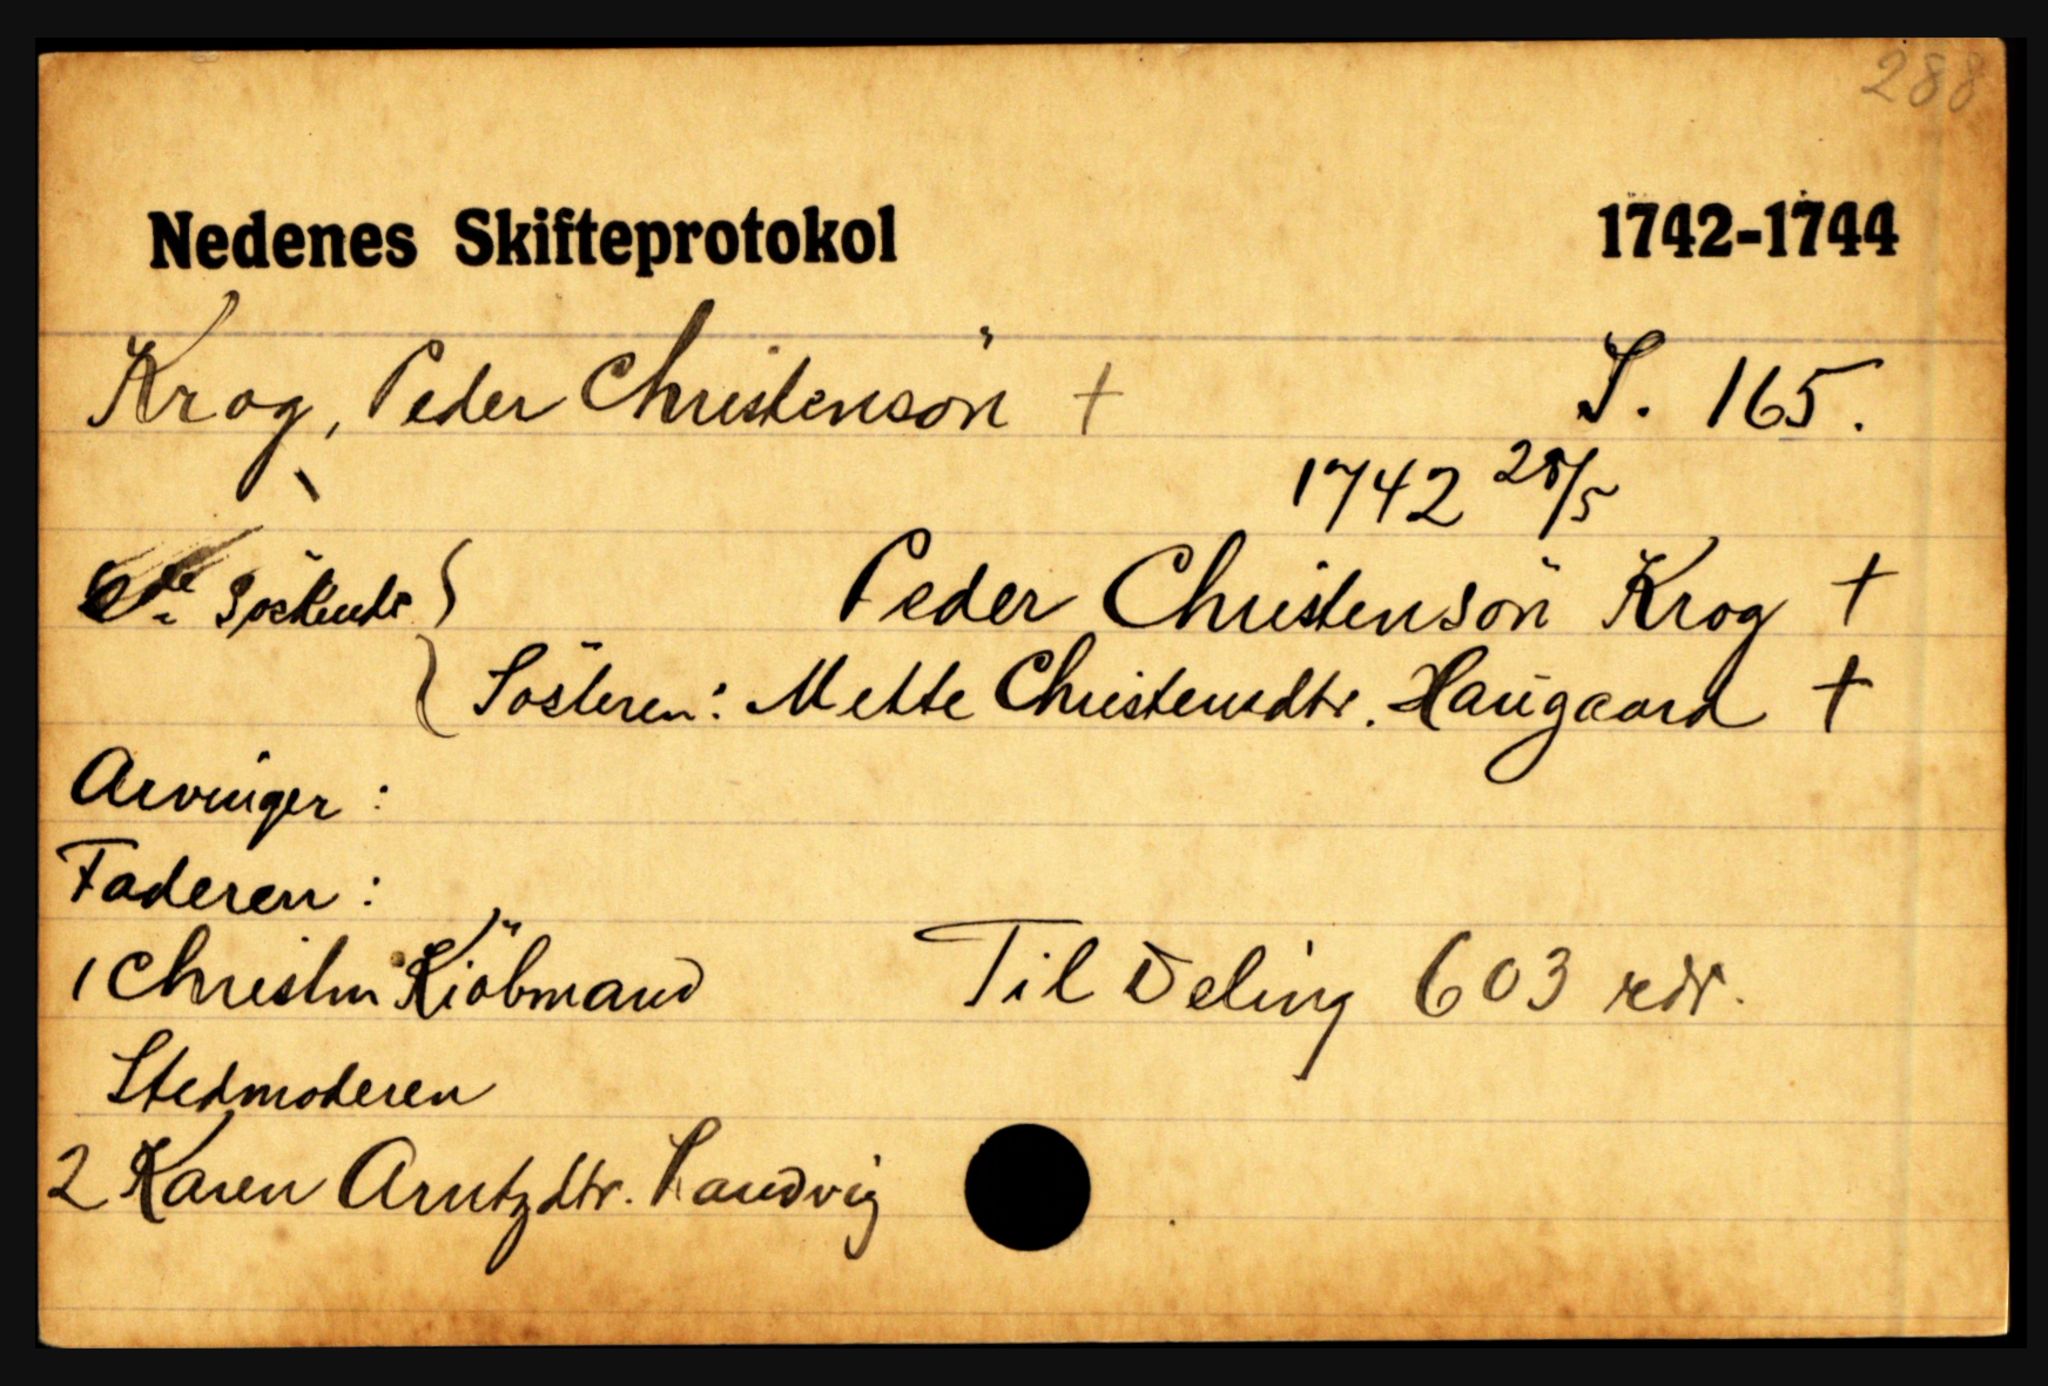 288
Nedenes Skifteprotokol 1742-1744
Krog, Peder Christensön † S. 165.
1742 28/5
Söskende } Peder Christensön Krog †
Sösteren: Mette Christensdtr. Haugaard †
Arvinger:
Faderen:
1 Christen Kiöbmand Til Deling 603 rdr.
Stedmoderen
2 Karen Arntzdtr. Landvig